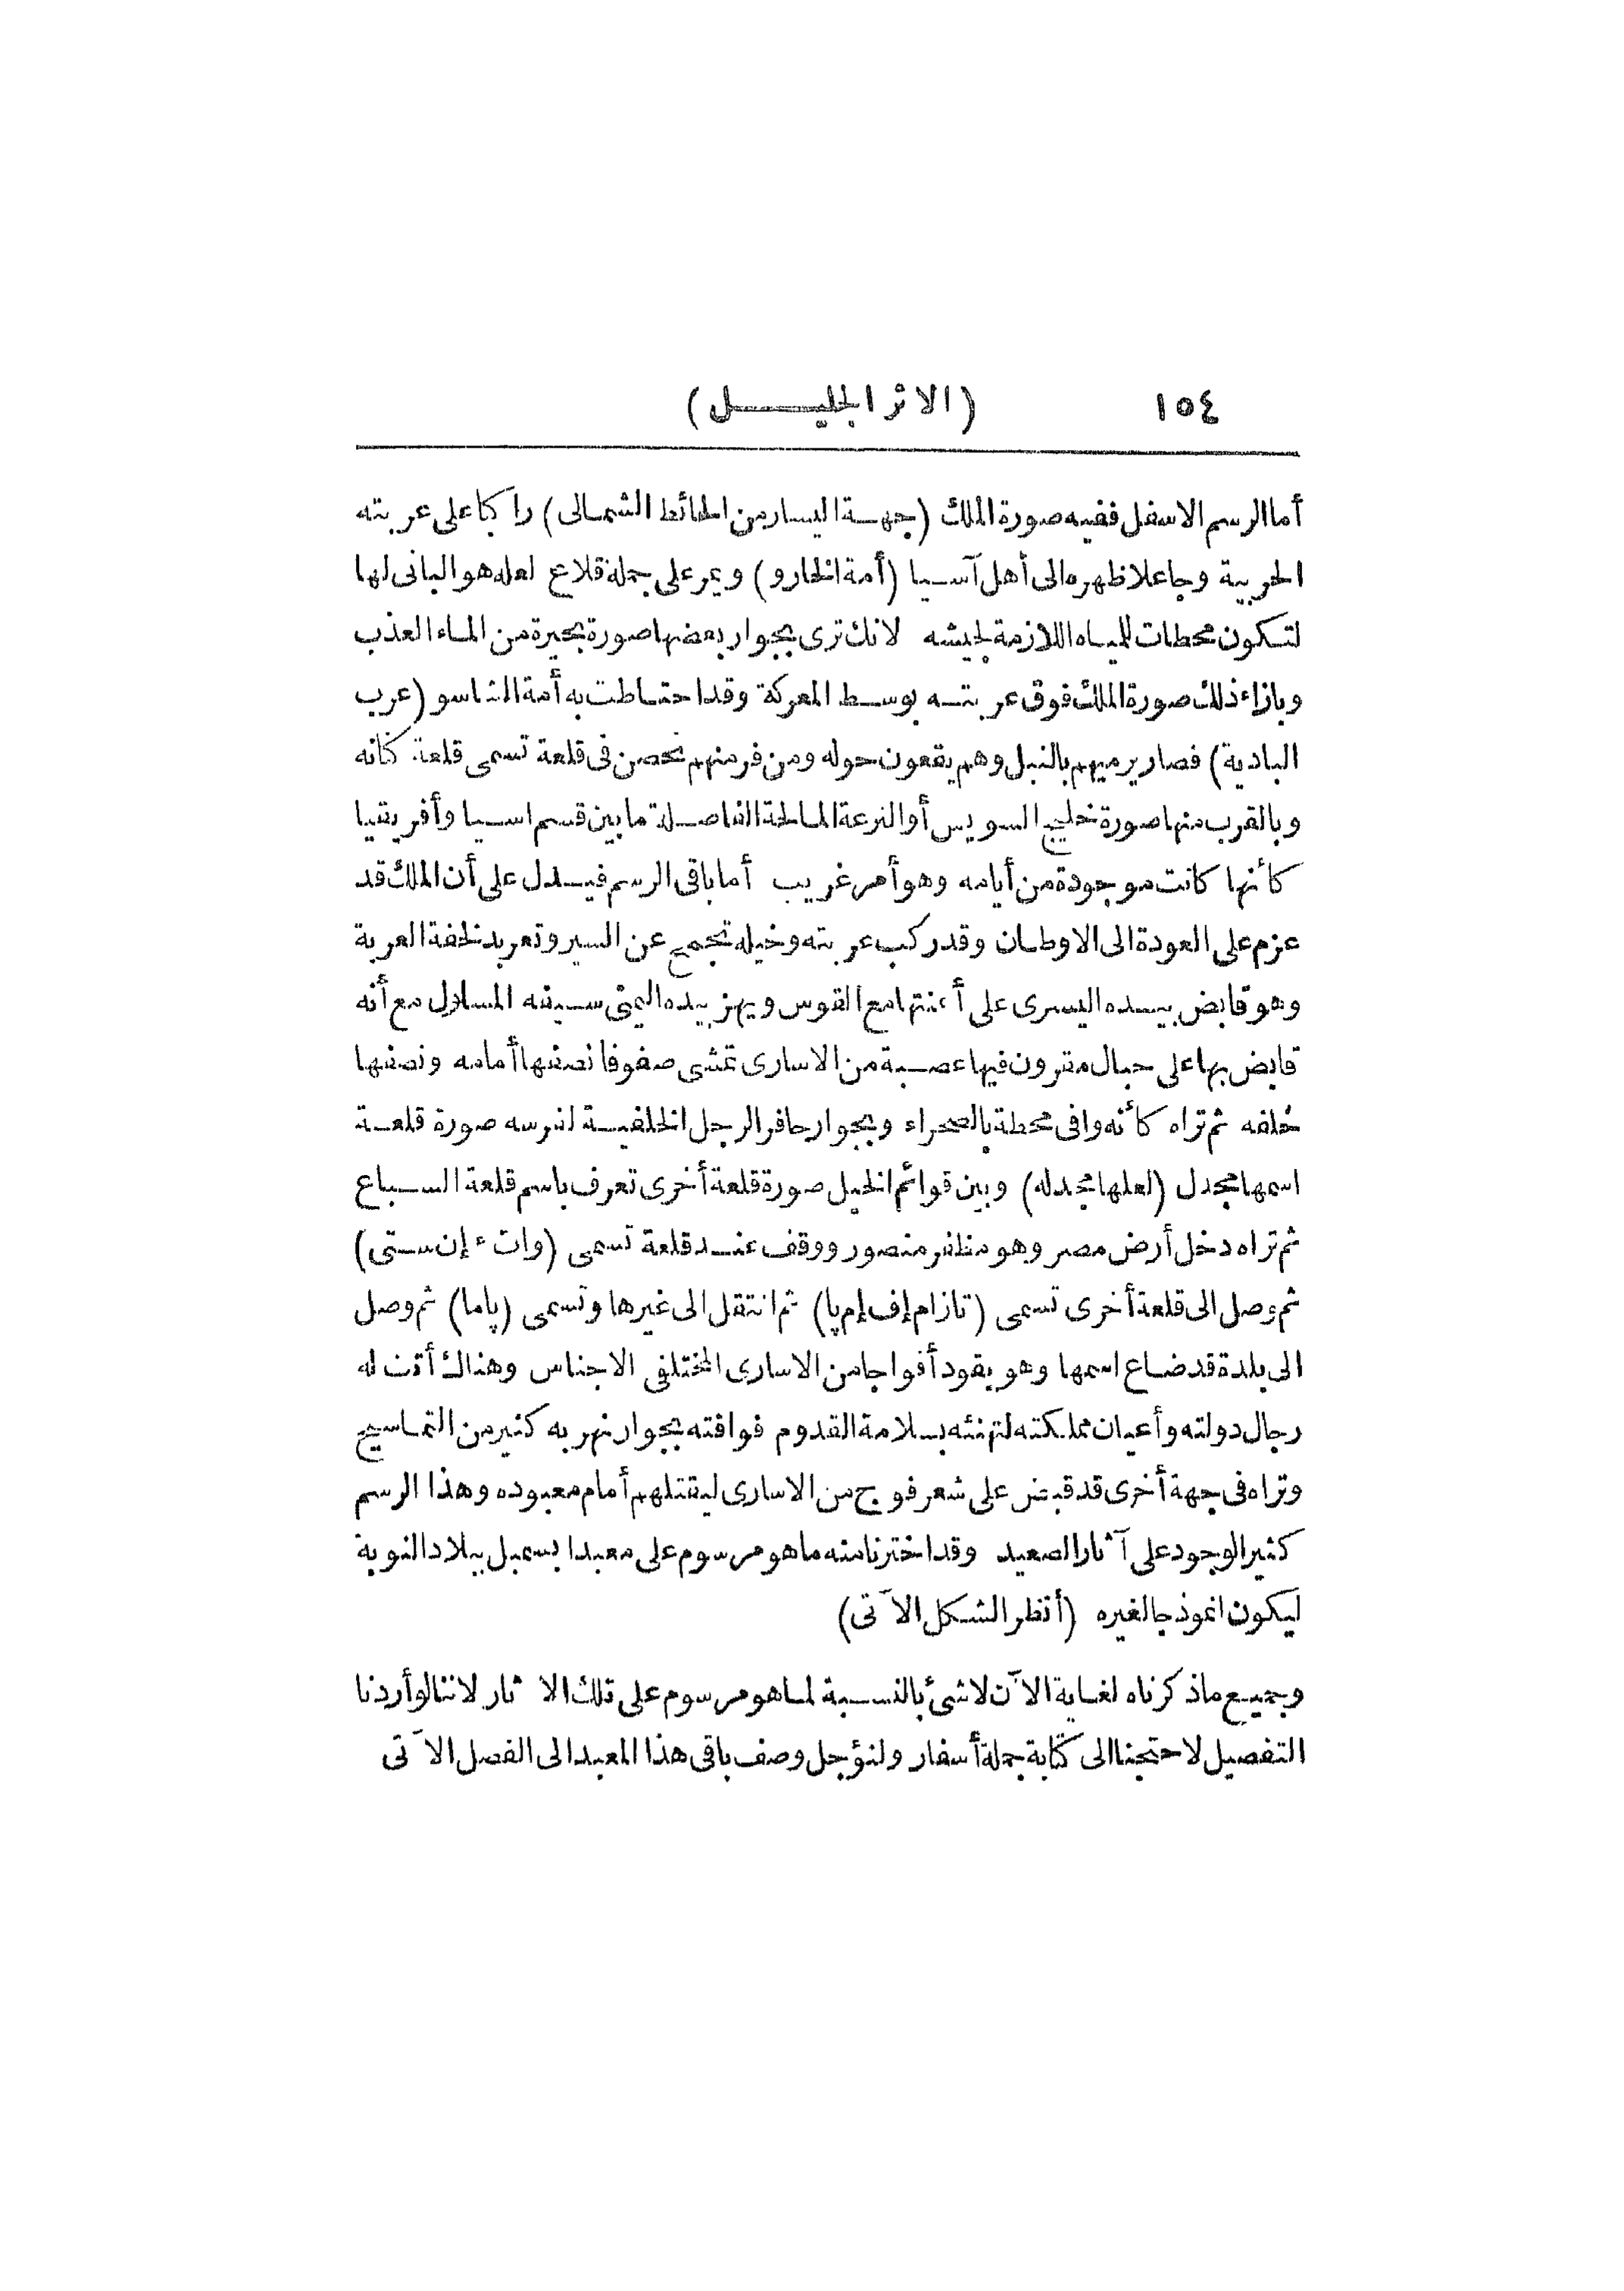 ١٥٤ (الاثر الجليل)
أما الرسم الاسفل ففيه صورة الملك (جهة اليسار من الحائط الشمالى) راكبا على عربته
الحربية وجاعلا ظهره الى أهل آسيا (أمة الخارو) ويمر على جملة قلاع لعله هو البانى لها
لتكون محطات للمياه اللازمة لجيشه لانك ترى بجوار بعضها صورة بحيرة من الماء العذب
وبازاء ذلك صورة الملك فوق عربته بوسط المعركة وقد احتاطت به أمة الشاسو (عرب
البادية) فصار يرميهم بالنبل وهم يقعون حوله ومن فر منهم تحصن فى قلعة تسمى قلعة كنانه
وبالقرب منها صورة خليج السويس أو الترعة المالحة الفاصلة ما بين قسم اسيا وأفريقيا
كأنها كانت موجودة من أيامه وهو أمر غريب أما باقى الرسم فيدل على أن الملك قد
عزم على العودة الى الاوطان وقد ركب عربته وخيله تجمح عن السير وتعربد لخفة العربة
وهو قابض بيده اليسرى على أعنتها مع القوس ويهز بيده اليمنى سيفه المسلول مع أنه
قابض بها على حبال مقرون فيها عصبة من الاسارى تمشى صفوفا نصفها أمامه ونصفها
خلفه ثم تراه كأنه وافى محطة بالصحراء وبجوار حافر الرجل الخلفية لفرسه صورة قلعة
اسمها مجدل (لعلها مجدله) وبين قوائم الخيل صورة قلعة أخرى تعرف باسم قلعة السباع
ثم تراه دخل أرض مصر وهو مظفر منصور ووقف عند قلعة تسمى (وات ء إن ستى)
ثم وصل الى قلعة أخرى تسمى (تازام إف إم پا) ثم انتقل الى غيرها وتسمى (پاما) ثم وصل
الى بلدة قد ضاع اسمها وهو يقود أفواجا من الاسارى المختلفى الاجناس وهناك أتت له
رجال دولته وأعيان مملكته لتهنئه بسلامة القدوم فوافته بجوار نهر به كثير من التماسيح
وتراه فى جهة أخرى قد قبض على شعر فوج من الاسارى ليقتلهم أمام معبوده وهذا الرسم
كثير الوجود على آثار الصعيد وقد اخترنا منه ما هو مرسوم على معبد ابسمبل ببلاد النوبة
ليكون انموذجا لغيره (أنظر الشكل الآتى)
وجميع ما ذكرناه لغاية الآن لا شئ بالنسبة لما هو مرسوم على تلك الآثار لاننا لو أردنا
التفصيل لاحتجنا الى كتابة جملة أسفار ولنؤجل وصف باقى هذا المعبد الى الفصل الآتى